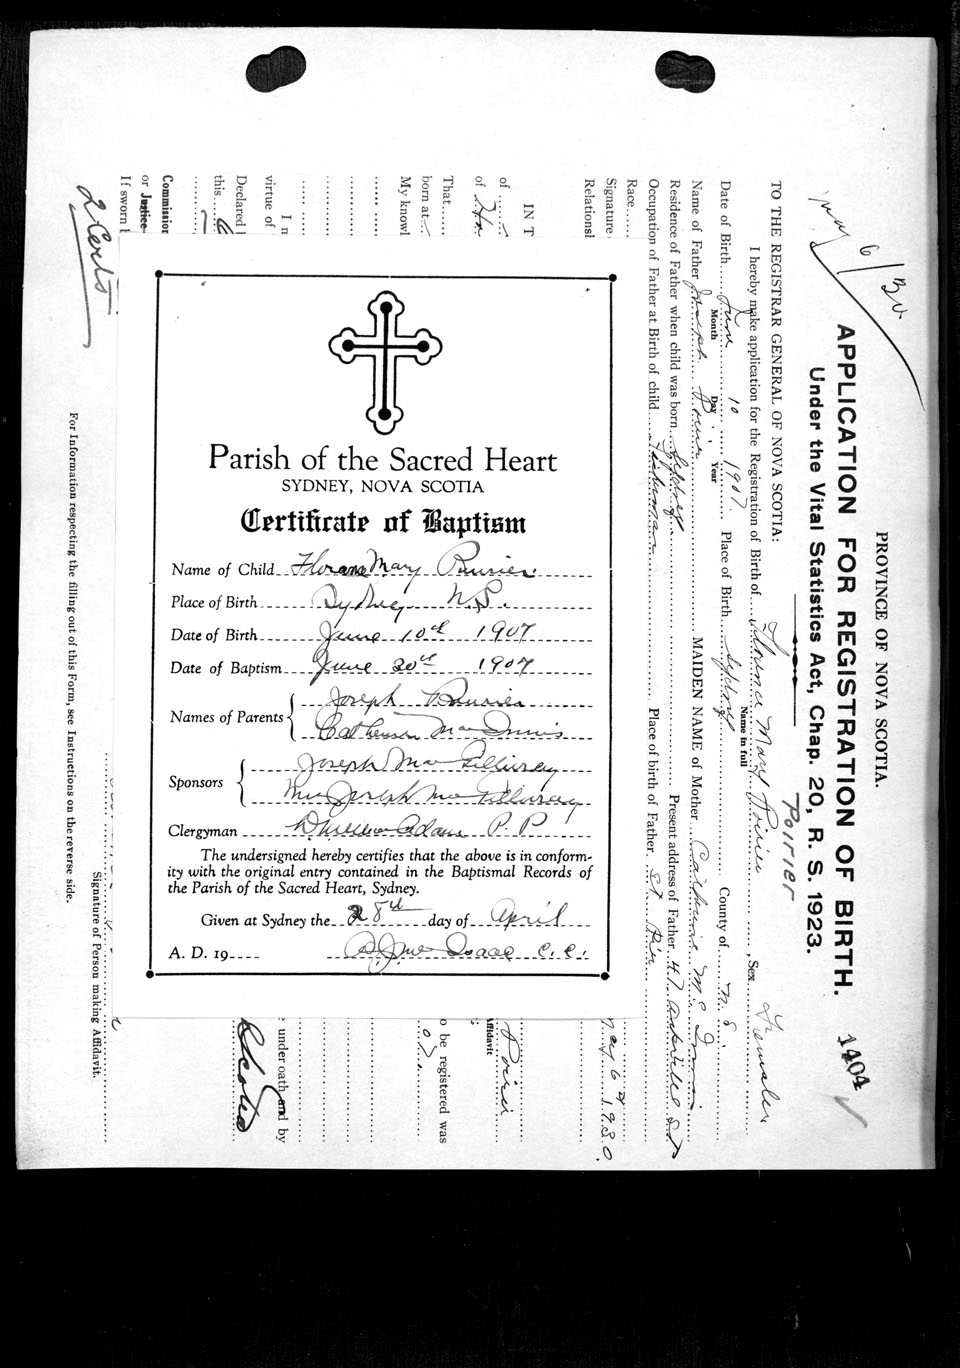 Parish of the Sacred Heart
SYDNEY, NOVA SCOTIA
Certificate of Baptism
Name of Child Florance Mary Purrier
Place of Birth Sydney N.S.
Date of Birth June 10th 1907
Date of Baptism June 30th 1907
Names of Parents Joseph Purrier
Catherine MacInnis
Sponsors Joseph MacGillivray
Mrs Joseph MacGillivray
Clergyman Adam P. P.
The undersigned hereby certifies that the above is in conform-
ity with the original entry contained in the Baptismal Records of
the Parish of the Sacred Heart, Sydney.
Given at Sydney the 28th day of April
A. D. 19 Isaac C.C.
PROVINCE OF NOVA SCOTIA.
APPLICATION FOR REGISTRATION OF BIRTH. 1404
Under the Vital Statistics Act, Chap. 20, R. S. 1923.
May 6/30
Poirier
TO THE REGISTRAR GENERAL OF NOVA SCOTIA:
I hereby make application for the Registration of Birth of Florence Mary Poirier, Sex Female
Name in full
Date of Birth June 10 1907 Place of Birth Sydney County of N. S.
Month Day Year
Name of Father Joseph MAIDEN NAME of Mother Catherine McInnis
Residence of Father when child was born Sydney Present address of Father 47 St
Occupation of Father at Birth of child Fisherman Place of birth of Father St
Race
Signature May 6th 1930.
Relationsh
IN T
of
of Poirier
Affidavit
That
born at o be registered was
My knowl 07
I n
virtue of e under oath and by
Declared
this
Commission
or Justice
If sworn
2 Certs
Signature of Person making Affidavit.
For Information respecting the filling out of this Form, see Instructions on the reverse side.